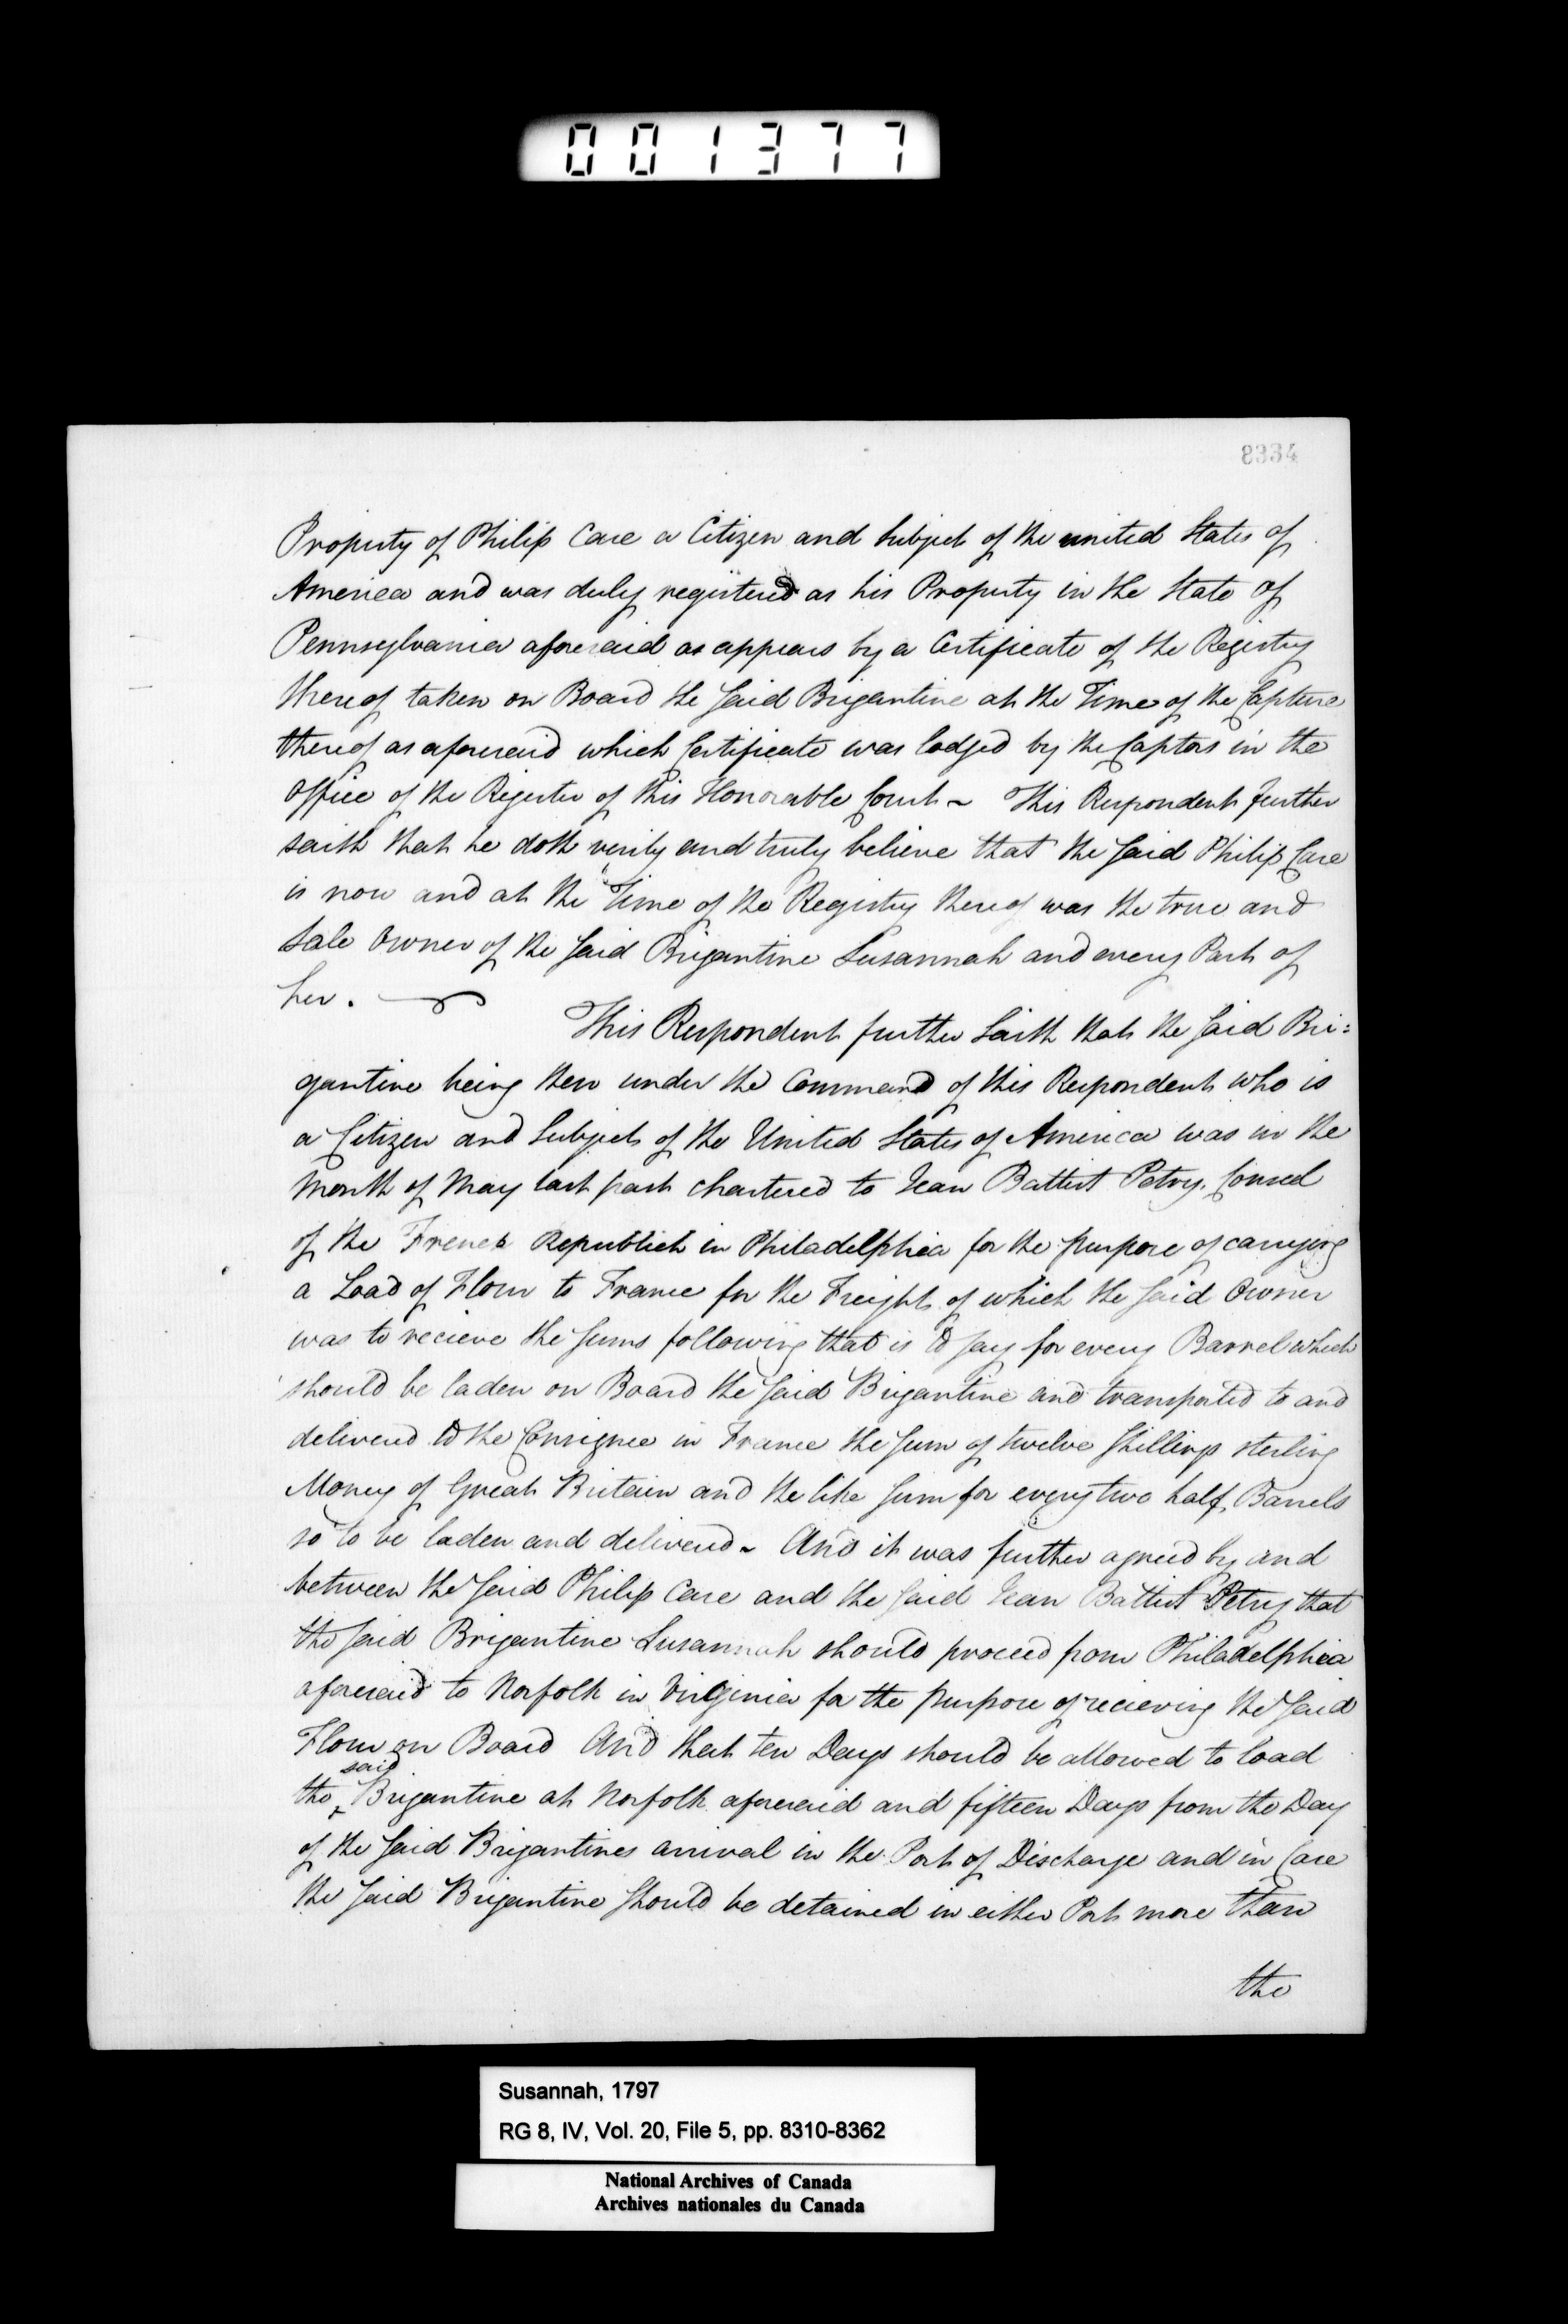 001377
8334
Property of Philip Care a Citizen and Subject of the united States of
America and was duly registered as his Property in the State of
Pennsylvania aforesaid as appears by a Certificate of the Registry
thereof taken on Board the said Brigantine at the Time of the Capture
thereof as aforesaid which Certificate was lodged by the Captors in the
Office of the Register of this Honorable Court ~ This Respondent further
saith that he doth verily and truly believe that the said Philip Care
is now and at the Time of the Registry thereof was the true and
Sole Owner of the said Brigantine Susannah and every Part of
her.
This Respondent further Saith that the said Bri=
gantine being then under the Command of this Respondent who is
a Citizen and Subject of the United States of America was in the
Month of May last past chartered to Jean Battist Petry. Consul
of the French Republick in Philadelphia for the purpose of carrying
a Load of Flour to France for the Freight of which the said Owner
was to recieve the sums following that is to say for every Barrel which
should be laden on Board the said Brigantine and transported to and
delivered to the Consignee in France the sum of twelve shillings sterling
Money of Great Britain and the like sum for every two half Barrels
so to be laden and delivered ~ And it was further agreed by and
between the said Philip Care and the said Jean Battist Petry that
the said Brigantine Susannah should proceed from Philadelphia
aforesaid to Norfolk in Virginia for the purpose of recieving the said
Flour on Board And that ten Days should be allowed to load
the said Brigantine at Norfolk aforesaid and fifteen Days from the Day
of the said Brigantines arrival in the Port of Discharge and in Case
the said Brigantine should be detained in either Port more than
the
Susannah, 1797
RG 8, IV, Vol. 20, File 5, pp. 8310-8362
National Archives of Canada
Archives nationales du Canada